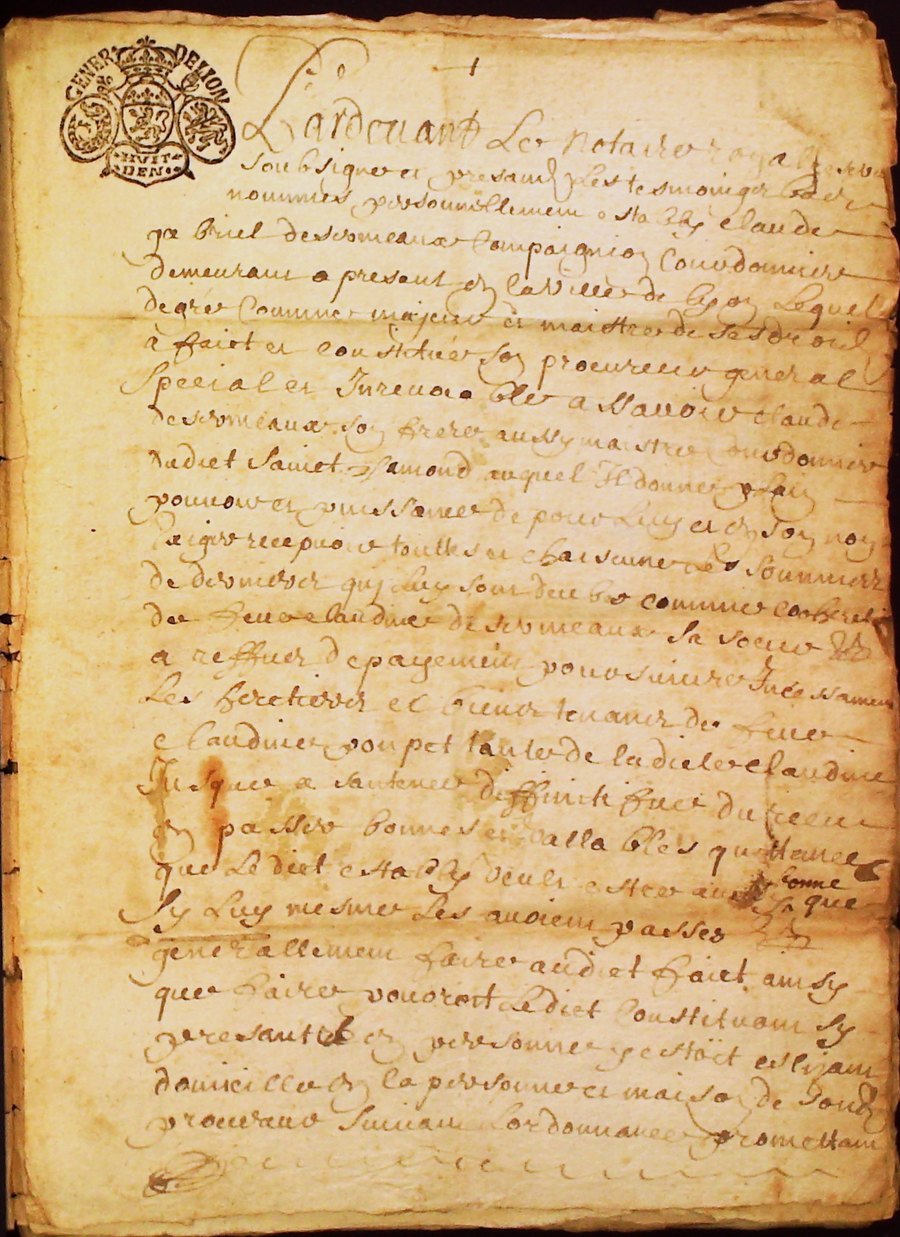 GENER DE LION
HUIT
DEN
Pardevant Le Notaire royal
soubsigné et presand Les tesmoingz bas
nommes personnellement estably claude
gabriel desormeaux Compaignion Courdonnier
demeurant a present en la ville de Lyon Lequel
de gré Comme majeur et maistre de ses droit
à faict et constitué son procureur general
special et Inrevocable assavoir claude
desormeaux son frere aussy maistre courdonnier
dudict sainct chamond auquel Il donne plain
pouvoir et puissance de pour Luy et en son nom
Exiger recepvoir touttes et chascune Les sommes
de deniers quj Luy sont deubes comme coheretier
de feue claudine desormeaux sa soeur
a reffuz de payement poursuivre Incessament
Les heretiers et biens tenantz de feue
claudine poupet tante de la dicte claudine
Jusque a santence diffinitifve du receu
en passer bonnes et vallables quittances
que Ledict estably veult estre aussy bonne que
sy Luy mesme Les avoient passes
generallement faire audict faict ainsy
que faire pouroit Ledict Constituant sy
presant en personne y estoit eslizant
domicille en la personne et maison de sondict
procureur suivant Lordonnance promettant